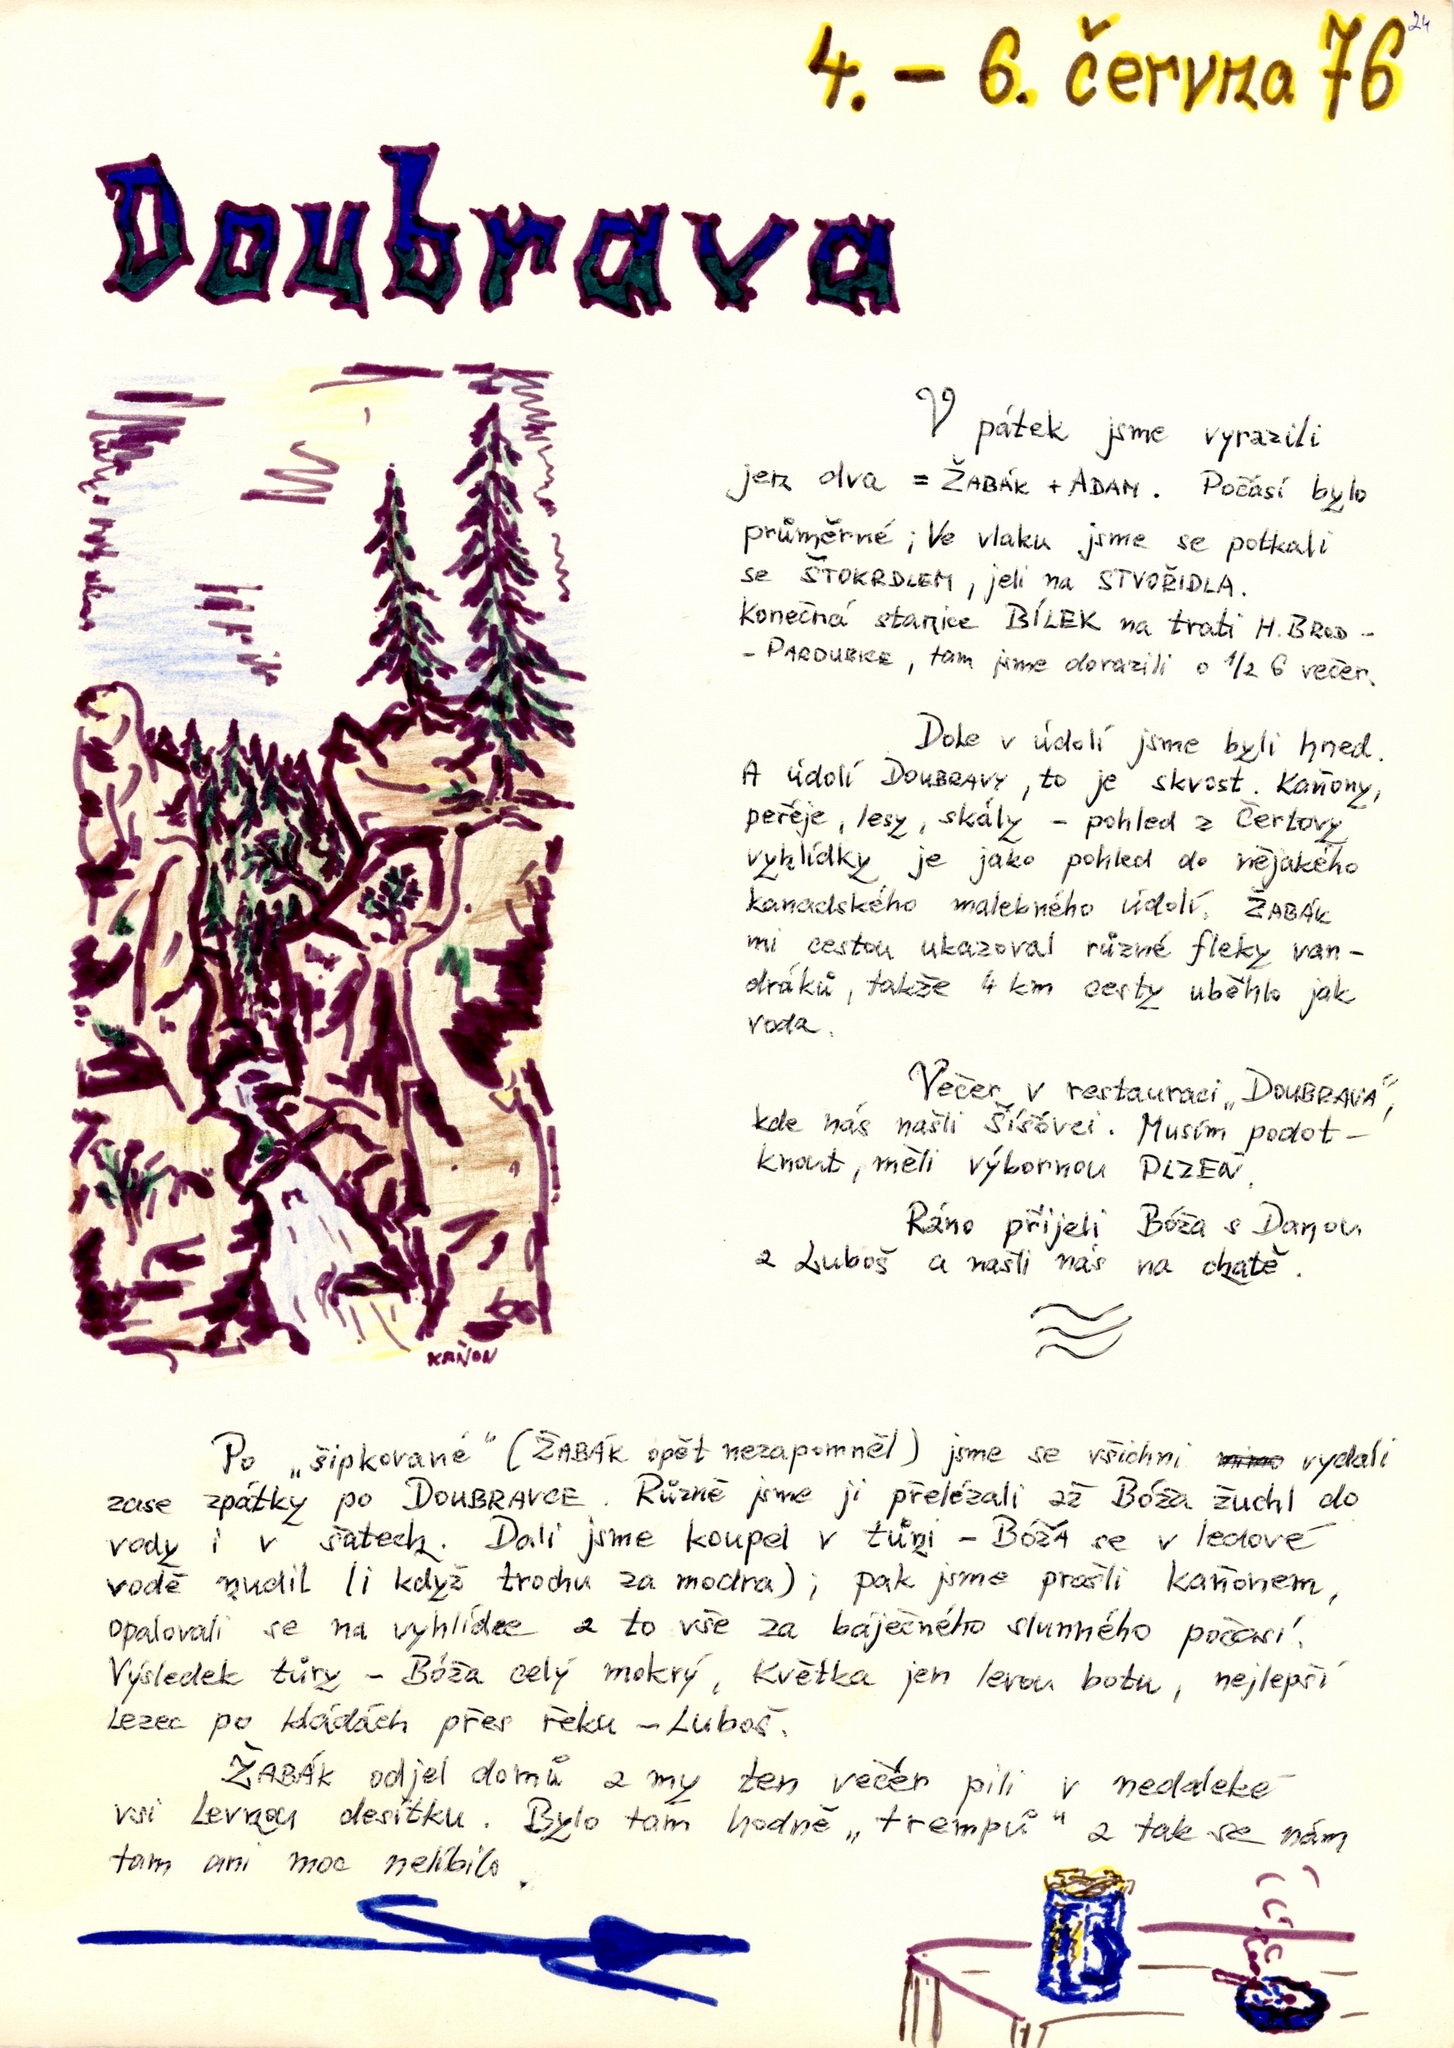 24
4. – 6. června 76
Doubrava
V pátek jsme vyrazili
jen dva = ŽABÁK + ADAM. Počasí bylo
průměrné; Ve vlaku jsme se potkali
se ŠTOKRDLEM, jeli na STVOŘIDLA.
Konečná stanice BÍLEK na trati H. BROD -
- PARDUBICE, tam jsme dorazili o 1/2 6 večer.
Dole v údolí jsme byli hned.
A údolí DOUBRAVY, to je skvost. Kaňony,
peřeje, lesy, skály – pohled z Čertovy
vyhlídky je jako pohled do nějakého
kanadského malebného údolí. ŽABÁK
mi cestou ukazoval různé fleky van-
dráků, takže 4 km cesty uběhlo jak
voda.
Večer v restauraci „DOUBRAVA",
kde nás našli Šíšovci. Musím podot-
knout, měli výbornou PLZEŇ.
Ráno přijeli Bóža s Danou
a Luboš a našli nás na chatě.
KAŇON
Po „šipkované" (ŽABÁK opět nezapomněl) jsme se všichni mimo vydali
zase zpátky po DOUBRAVCE. Různě jsme ji přelézali až Bóža žuchl do
vody i v šatech. Dali jsme koupel v tůni – BÓŽA se v ledové
vodě nudil (i když trochu za modra); pak jsme prošli kaňonem,
opalovali se na vyhlídce a to vše za báječného slunného počasí.
Výsledek túry – Bóža celý mokrý, Květka jen levou botu, nejlepší
lezec po kládách přes řeku – Luboš.
ŽABÁK odjel domů a my ten večer pili v nedaleké
vsi levnou desítku. Bylo tam hodně „trempů" a tak se nám
tam ani moc nelíbilo.